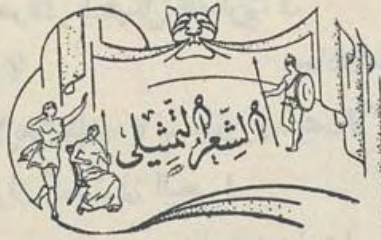 الشِّعر التَّمثيلى